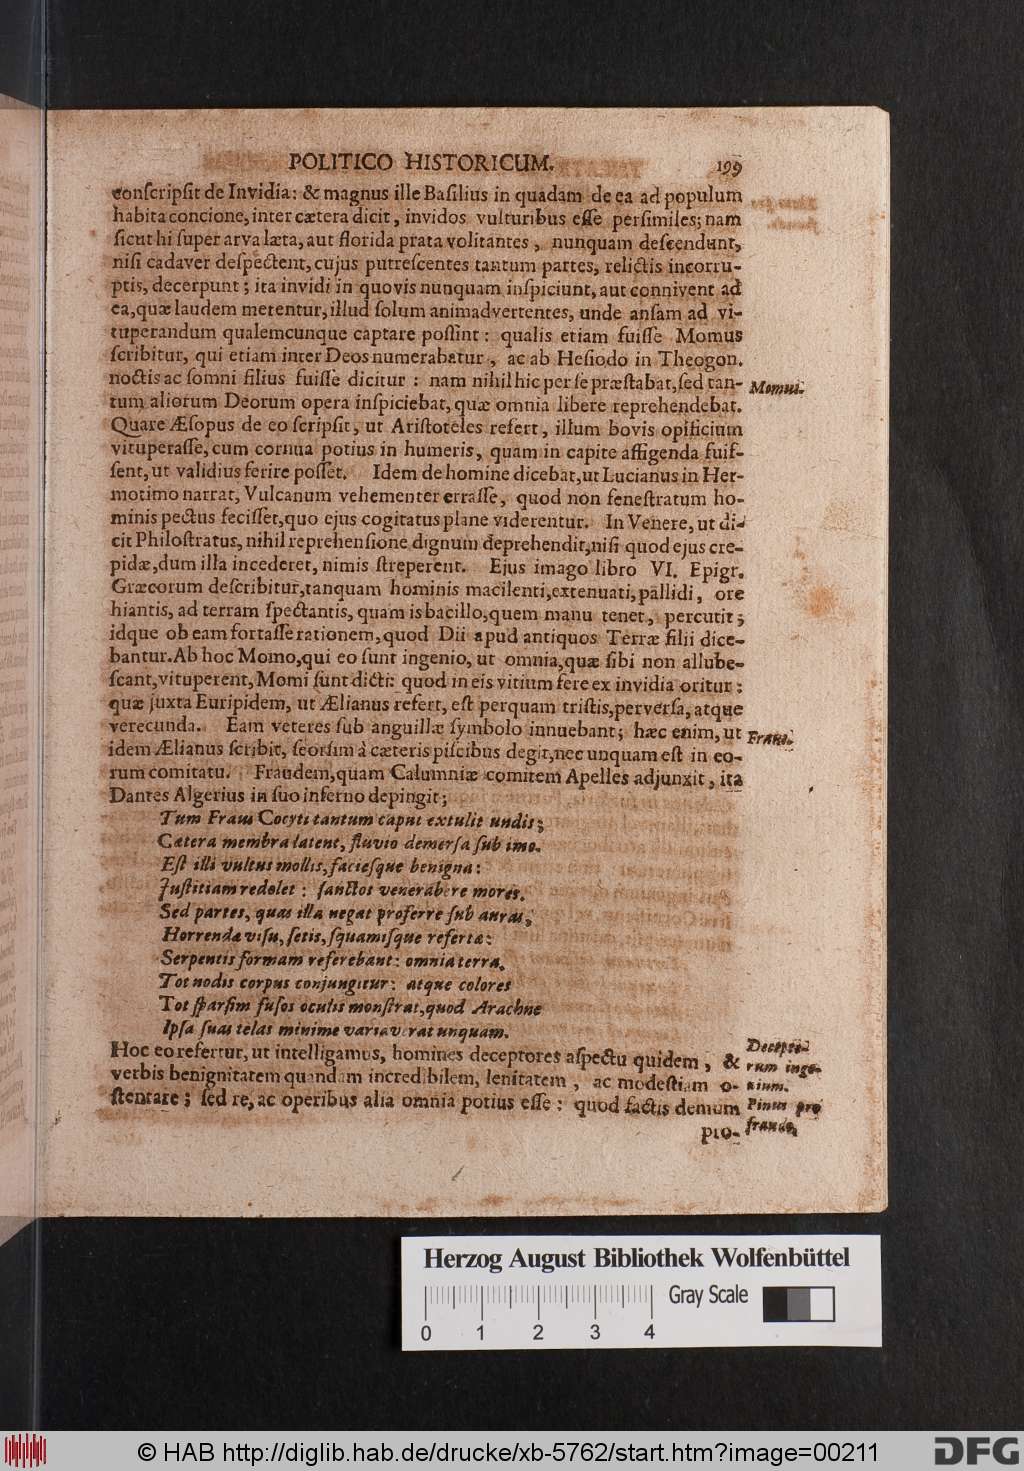 POLITICO HISTORICUM. 199
conſcripſit de Invidia: & magnus ille Baſilius in quadam de ea ad populum
habita concione, inter cætera dicit, invidos vulturibus eſſe perſimiles; nam
ſicut hi ſuper arva læta, aut florida prata volitantes, nunquam deſcendunt,
niſi cadaver deſpectent, cujus putreſcentes tantum partes, relictis incorru-
ptis, decerpunt; ita invidi in quovis nunquam inſpiciunt, aut connivent ad
ea, quæ laudem merentur, illud ſolum animadvertentes, unde anſam ad vi-
tuperandum qualemcunque captare poſſint: qualis etiam fuiſſe Momus
ſcribitur, qui etiam inter Deos numerabatur, ac ab Heſiodo in Theogon.
noctis ac ſomni filius fuiſſe dicitur: nam nihil hic per ſe præſtabat, ſed tan-
Momus.
tum aliorum Deorum opera inſpiciebat, quæ omnia libere reprehendebat.
Quare Æſopus de eo ſcripſit, ut Ariſtoteles refert, illum bovis opificium
vituperaſſe, cum cornua potius in humeris, quam in capite affigenda fuiſ-
ſent, ut validius ferire poſſet. Idem de homine dicebat, ut Lucianus in Her-
motimo narrat, Vulcanum vehementer erraſſe, quod non feneſtratum ho-
minis pectus feciſſet, quo ejus cogitatus plane viderentur. In Venere, ut di-
cit Philoſtratus, nihil reprehenſione dignum deprehendit, niſi quod ejus cre-
pidæ, dum illa incederet, nimis ſtreperent. Ejus imago libro VI. Epigr.
Græcorum deſcribitur, tanquam hominis macilenti, extenuati, pallidi, ore
hiantis, ad terram ſpectantis, quam is bacillo, quem manu tenet, percutit;
idque ob eam fortaſſe rationem, quod Dii apud antiquos Terræ filii dice-
bantur. Ab hoc Momo, qui eo ſunt ingenio, ut omnia, quæ ſibi non allube-
ſcant, vituperent, Momi ſunt dicti: quod in eis vitium fere ex invidia oritur:
quæ juxta Euripidem, ut Ælianus refert, eſt perquam triſtis, perverſa, atque
verecunda. Eam veteres ſub anguillæ ſymbolo innuebant; hæc enim, ut
Fraus.
idem Ælianus ſcribit, ſeorſim à cæteris piſcibus degit, nec unquam eſt in eo-
rum comitatu. Fraudem, quam Calumniæ comitem Apelles adjunxit, ita
Dantes Algerius in ſuo inferno depingit;
Tum Fraus Cocyti tantum caput extulit undis;
Cætera membra latent, fluvio demerſa ſub imo.
Eſt illi vultus mollis, facieſque benigna:
Juſtitiam redolet: ſanctos venerabere mores.
Sed partes, quas illa negat proferre ſub auras,
Horrendæ viſu, ſetis, ſquamiſque refertæ:
Serpentis formam referebant: omnia terra.
Tot nodis corpus conjungitur: atque colores
Tot ſparſim fuſos oculis monſtrat, quod Arachne
Ipſa ſuas telas minime variaverat unquam.
Hoc eo refertur, ut intelligamus, homines deceptores aſpectu quidem, &
verbis benignitatem quandam incredibilem, lenitatem, ac modeſtiam o-
ſtentare; ſed re, ac operibus alia omnia potius eſſe: quod factis demum
pro-
Decepto-
rum inge-
nium.
Pinus pro
fraude.
Herzog August Bibliothek Wolfenbüttel
Gray Scale
0 1 2 3 4
© HAB http://diglib.hab.de/drucke/xb-5762/start.htm?image=00211
DFG